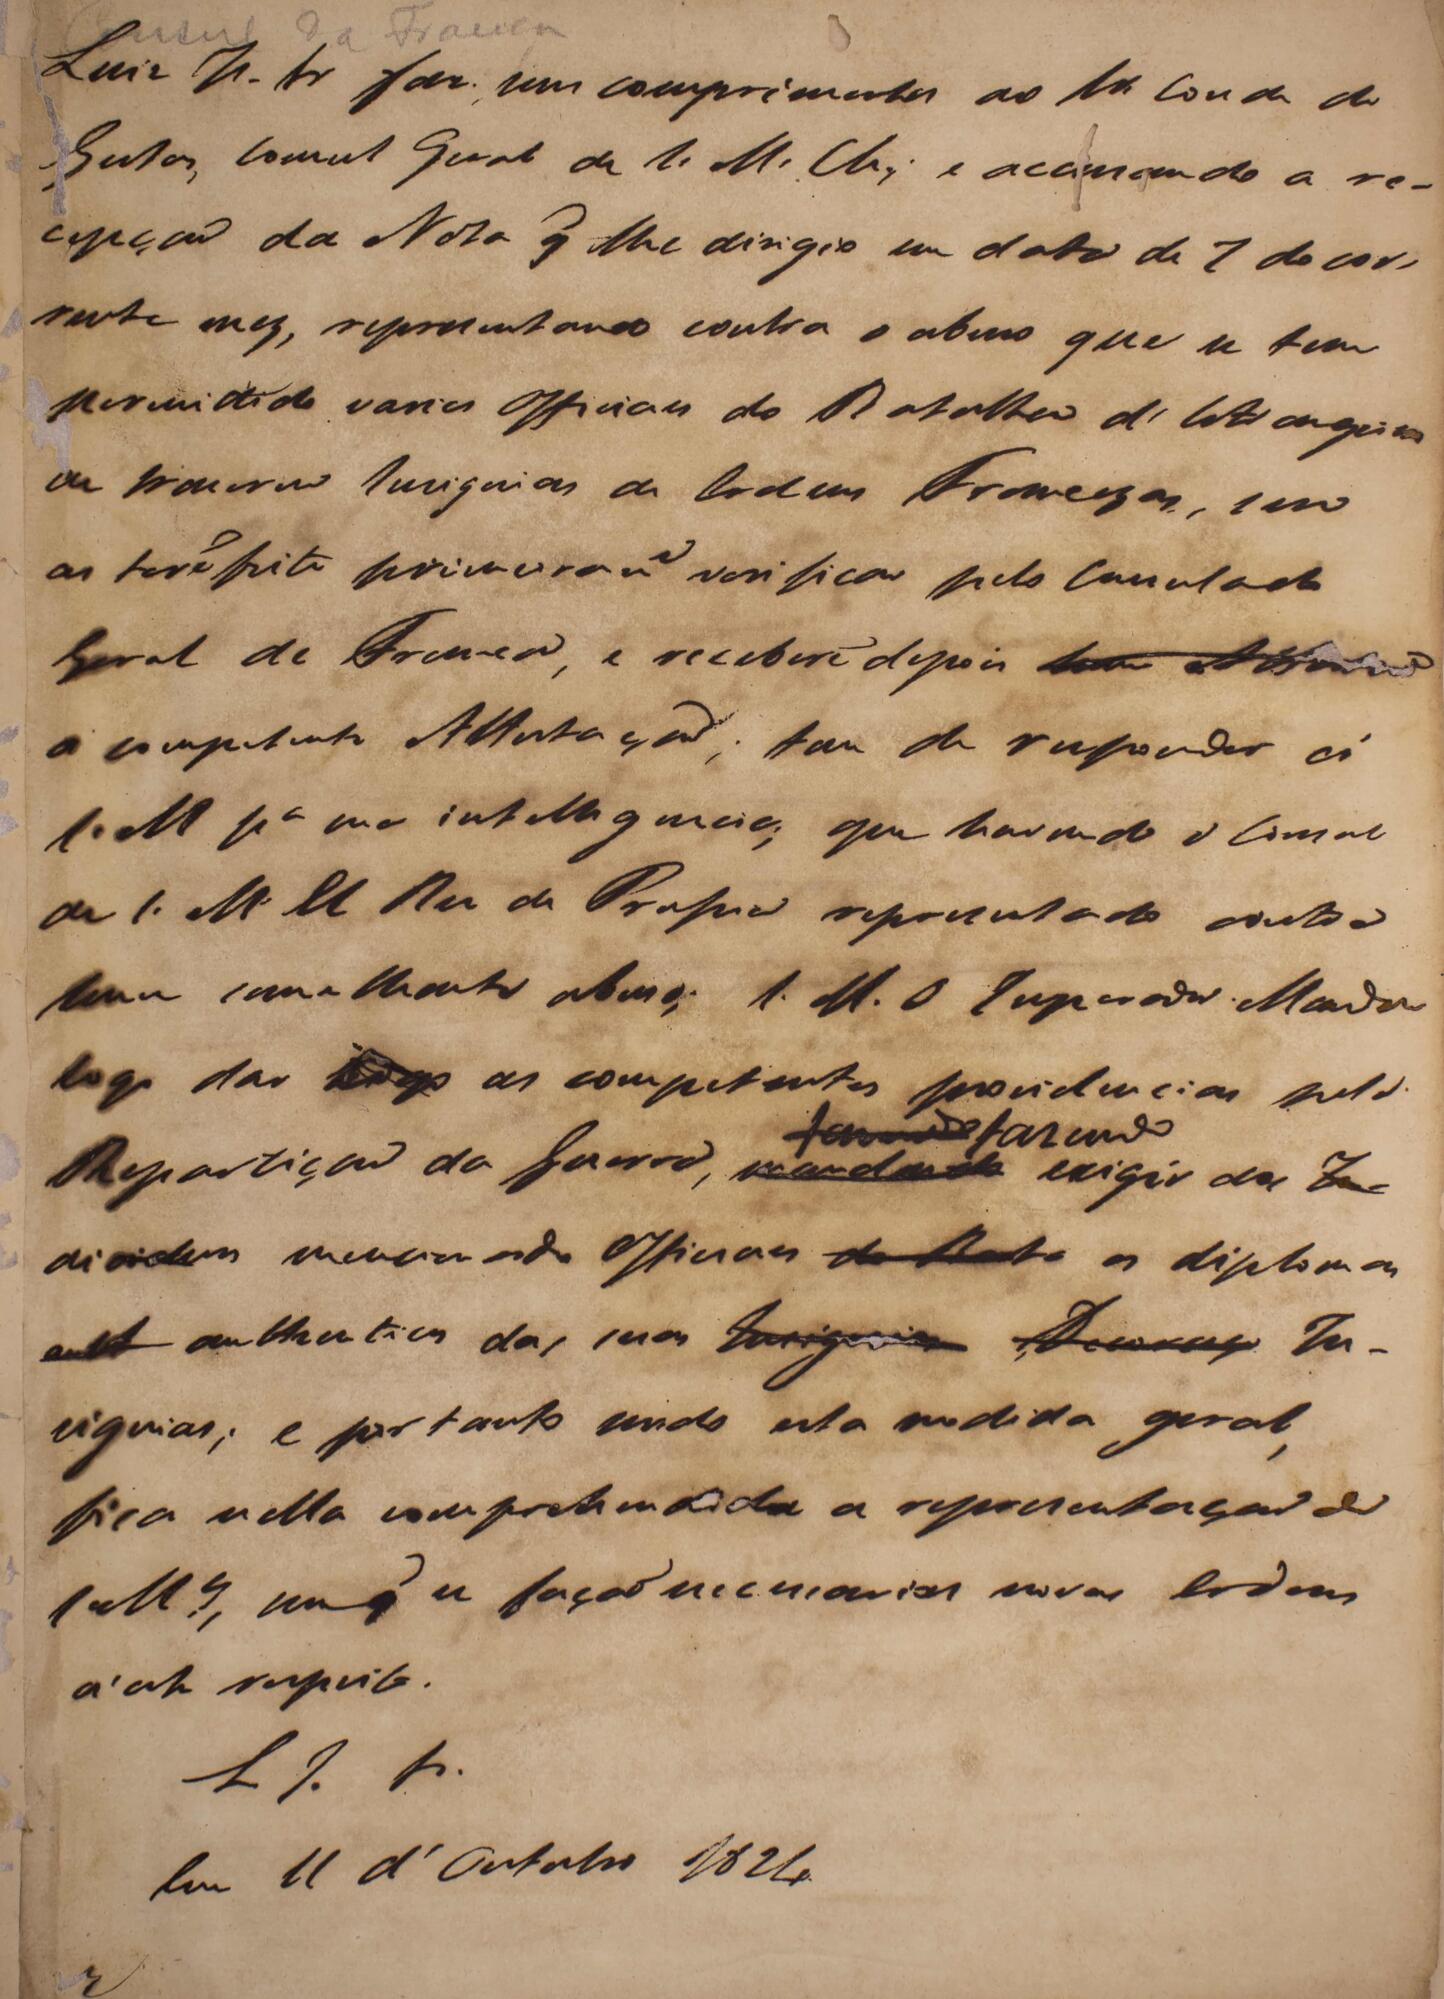 Consul da França
Luiz J. fr faz seus comprimentos ao Sr Conde de
Gestas, Consul Geral de S. M. Chr; e accusando a re-
cepçaõ da Nota q̃ elle dirigio em data de 7 do cor-
rente mez, representando contra o abuso que se tem
permittido varios Officiaes do Batalhaõ d'Estrangeiros
de trazerem Insignias de Ordens Francezas, sem
as terẽ feito primeiramᵉ verificar pelo Consulado
Geral de França, e receberẽ depois huma
a competente Attestaçaõ; tem de responder á
S. M pª sua intelligencia, que havendo o Consul
de S. M. El Rei da Prussia representado contra
hum semelhante abuso; S. M. O Imperador Mandou
logo dar logo as competentes providencias pela
Repartiçaõ da Guerra, mandando fazendo exigir dos In-
dividuos mencionados Officiaes do Bata os diplomas
aut authenticos das suas Insignias Decoraço In-
signias; e portanto sendo esta medida geral,
fica nella comprehendida a representaçaõ de
S. Mᶜᵉ, sem q̃ se façaõ necessarias novas Ordens
a'este respeito.
L J. fr.
Em 11 d'Outubro 1824